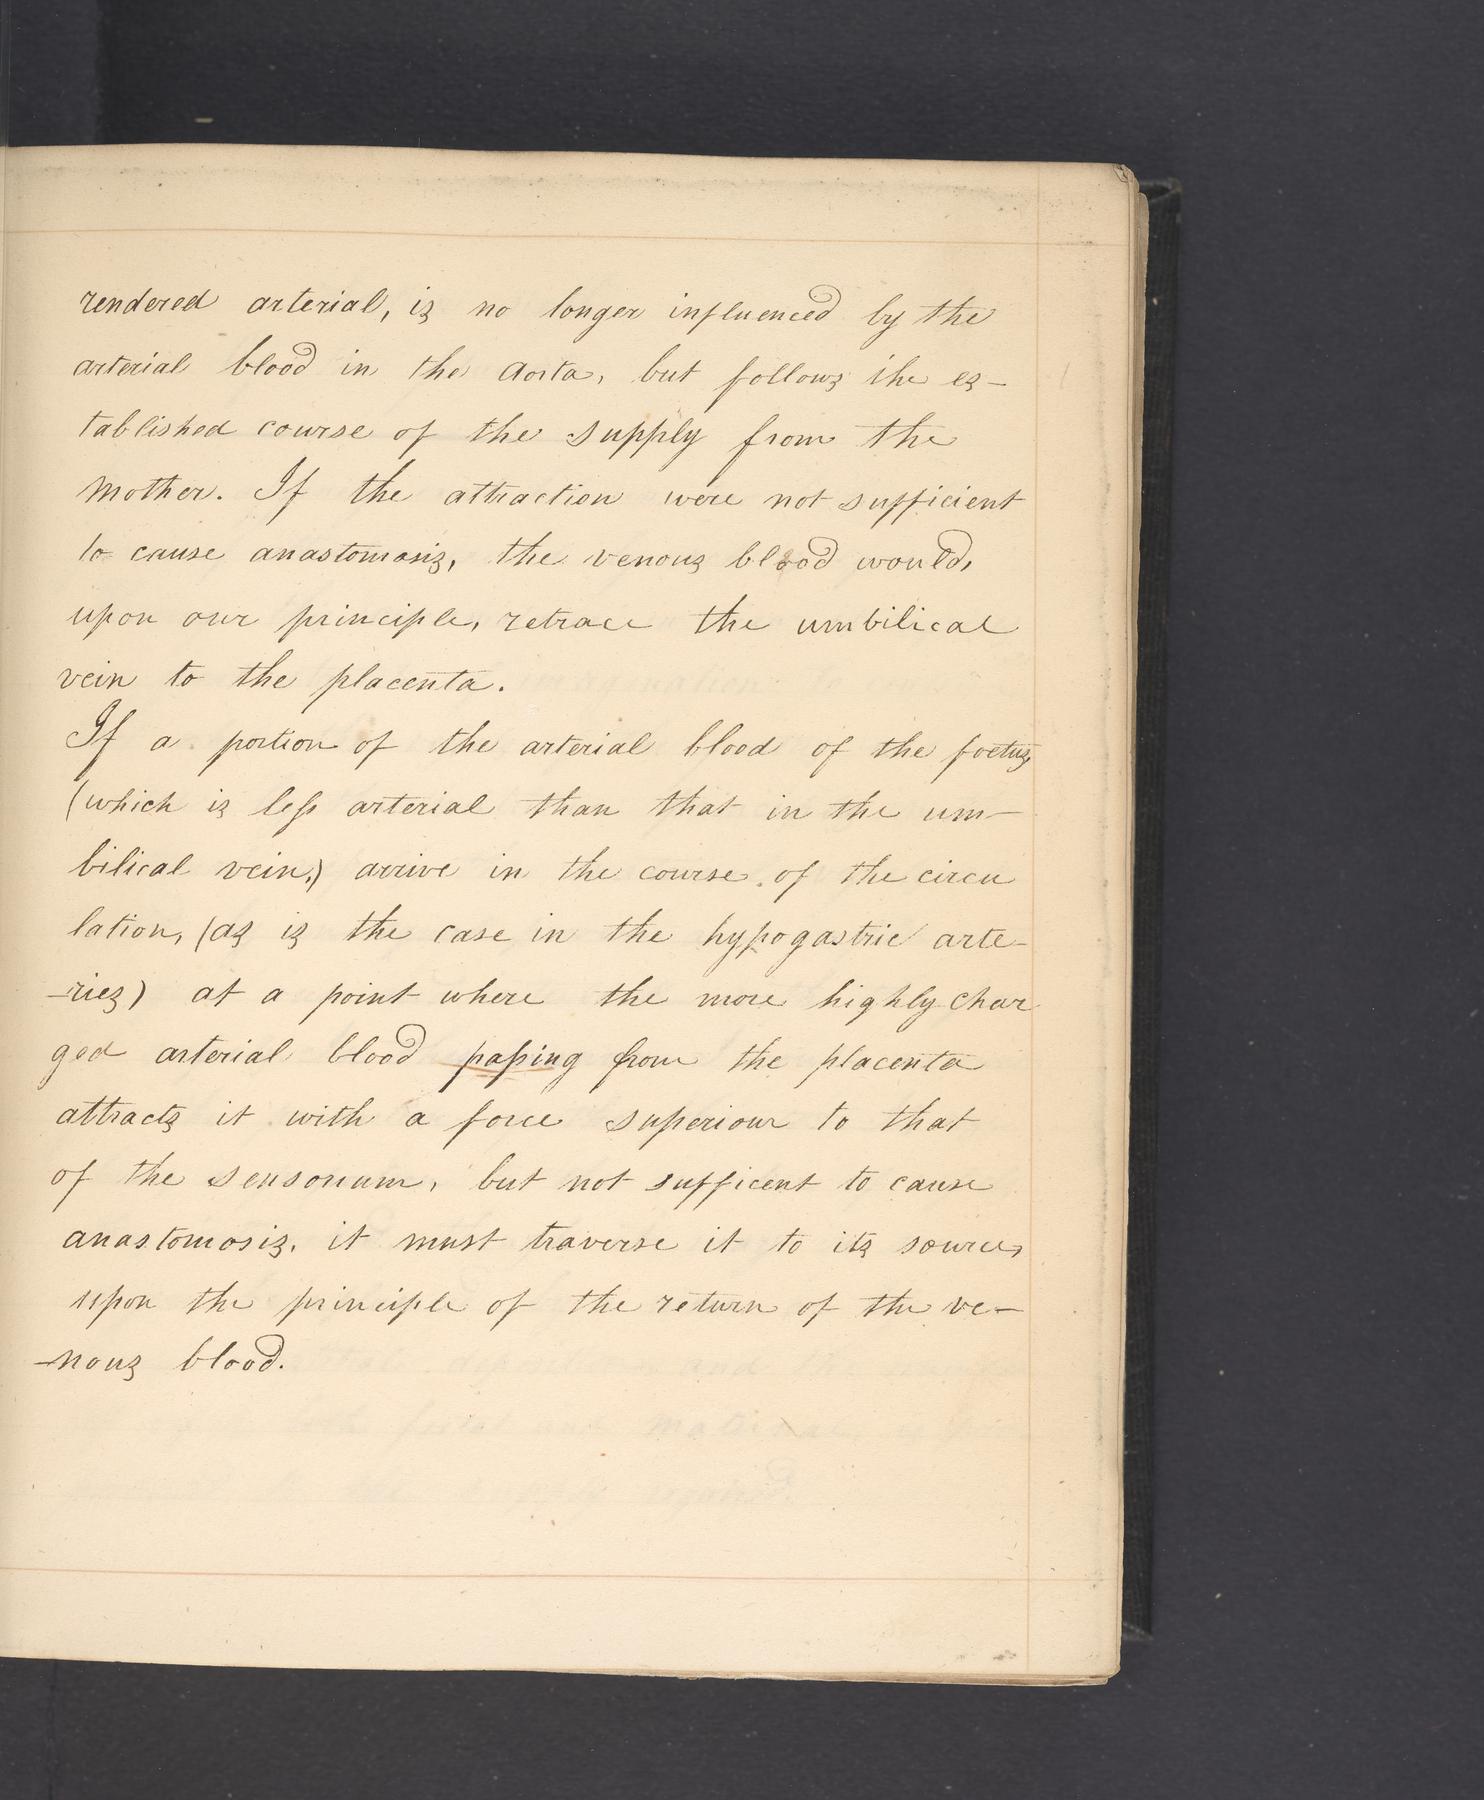 rendered arterial, is no longer influenced by the
arterial blood in the Aorta, but follows the es-
tablished course of the supply from the
mother. If the attraction were not sufficient
to cause anastomosis, the venous blood would,
upon our principle, retrace the umbilical
vein to the placenta.
If a portion of the arterial blood of the foetus,
(which is less arterial than that in the um-
bilical vein,) arrive in the course of the circu
lation, (as is the case in the hypogastric arte-
-ries) at a point where the more highly char
ged arterial blood passing from the placenta
attracts it with a force superiour to that
of the sensorium, but not sufficent to cause
anastomosis, it must traverse it to its source,
upon the principle of the return of the ve-
-nous blood.